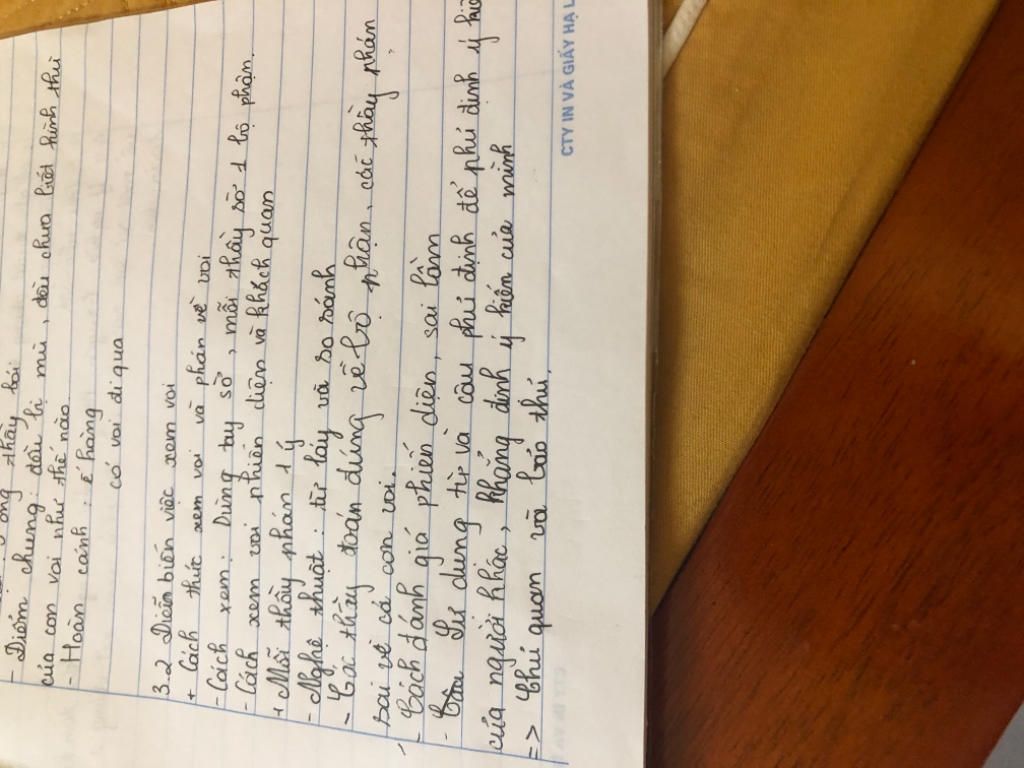 ông thầy bói
- Điểm chung: đều bị mù, đều chưa biết hình thù
của con voi như thế nào
- Hoàn cảnh: ế hàng
có voi đi qua
3.2 Diễn biến việc xem voi
+ Cách thức xem voi và phán về voi
- Cách xem: Dùng tay sờ, mỗi thầy sờ 1 bộ phận.
- Cách xem voi phiến diện và khách quan
+ Mỗi thầy phán 1 ý
- Nghệ thuật: từ láy và so sánh
- Các thầy đoán đúng về bộ phận, các thầy phán
sai về cả con voi.
- Cách đánh giá phiến diện, sai lầm
- Câu sử dụng từ và câu phủ định để phủ định ý kiế
của người khác, khẳng định ý kiến của mình
=> Chủ quan và bảo thủ.
CTY IN VÀ GIẤY HẠ L